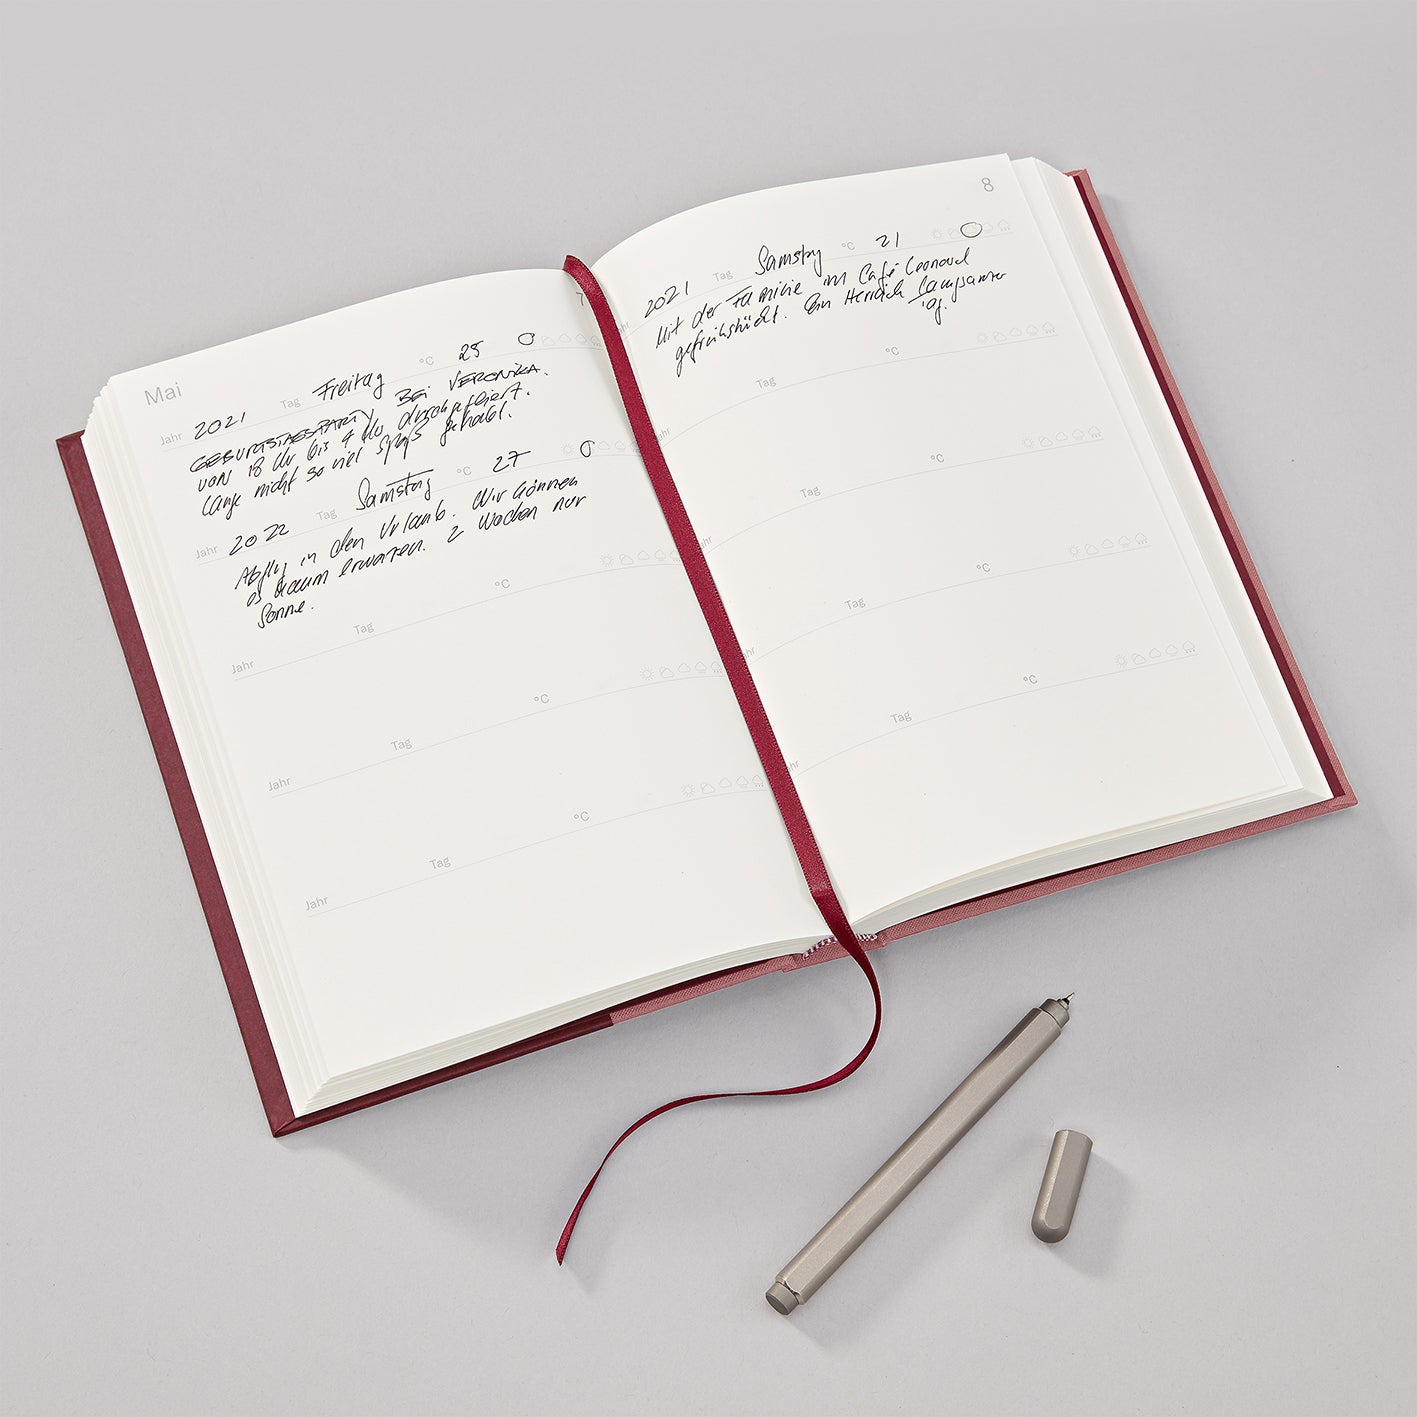 Mai 7
Jahr 2021 Tag Freitag °C 25
GEBURTSTAGSPARTY BEI VERONIKA.
VON 18 Uhr bis 4 Uhr durchgefeiert.
Lange nicht so viel Spaß gehabt.
Jahr 2022 Tag Samstag °C 27
Abflug in den Urlaub. Wir können
es kaum erwarten. 2 Wochen nur
Sonne.
Jahr Tag °C
Jahr Tag °C
Jahr Tag °C
8
2021 Tag Samstag °C 21
Mit der Familie im Café Leonard
gefrühstückt. Ein Herrlich langsamer
Tag.
Jahr Tag °C
Jahr Tag °C
Jahr Tag °C
Jahr Tag °C